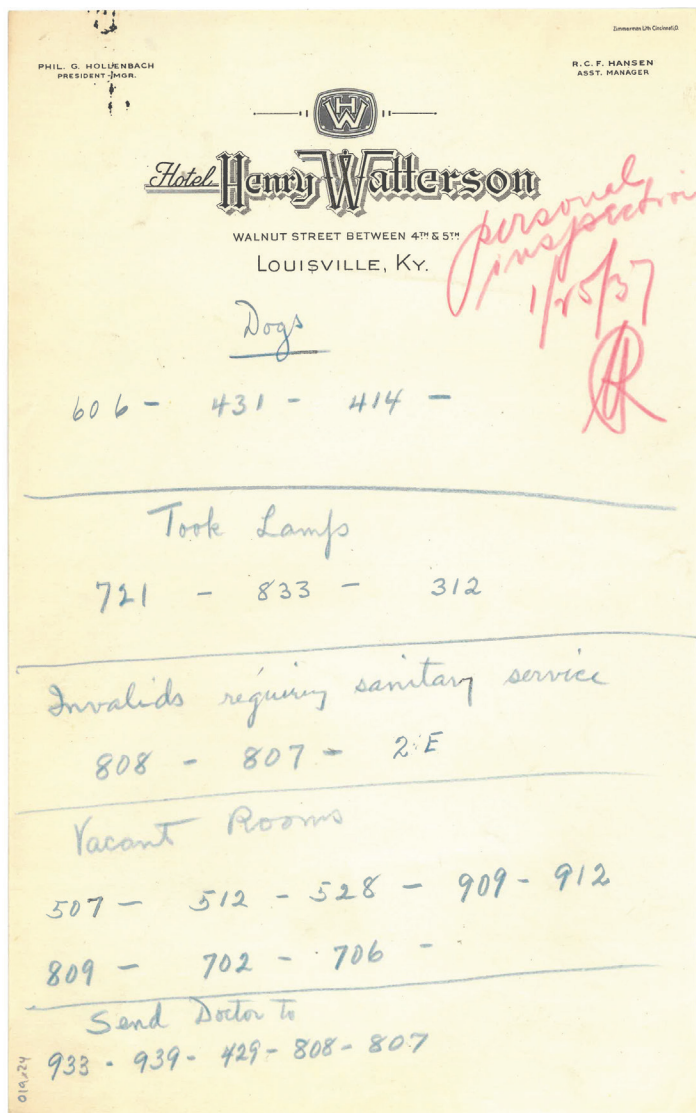 Zimmerman Lith Cincinnati, O.
PHIL. G. HOLLENBACH
PRESIDENT-MGR.
R. C. F. HANSEN
ASST. MANAGER
HW
Hotel Henry Watterson
WALNUT STREET BETWEEN 4TH & 5TH
LOUISVILLE, KY.
personal
inspection
1/25/37
Dogs
606 - 431 - 414 -
Took Lamps
721 - 833 - 312
Invalids requiring sanitary service
808 - 807 - 2 E
Vacant Rooms
507 - 512 - 528 - 909 - 912
809 - 702 - 706 -
Send Doctor to
933 - 939 - 429 - 808 - 807
019x24